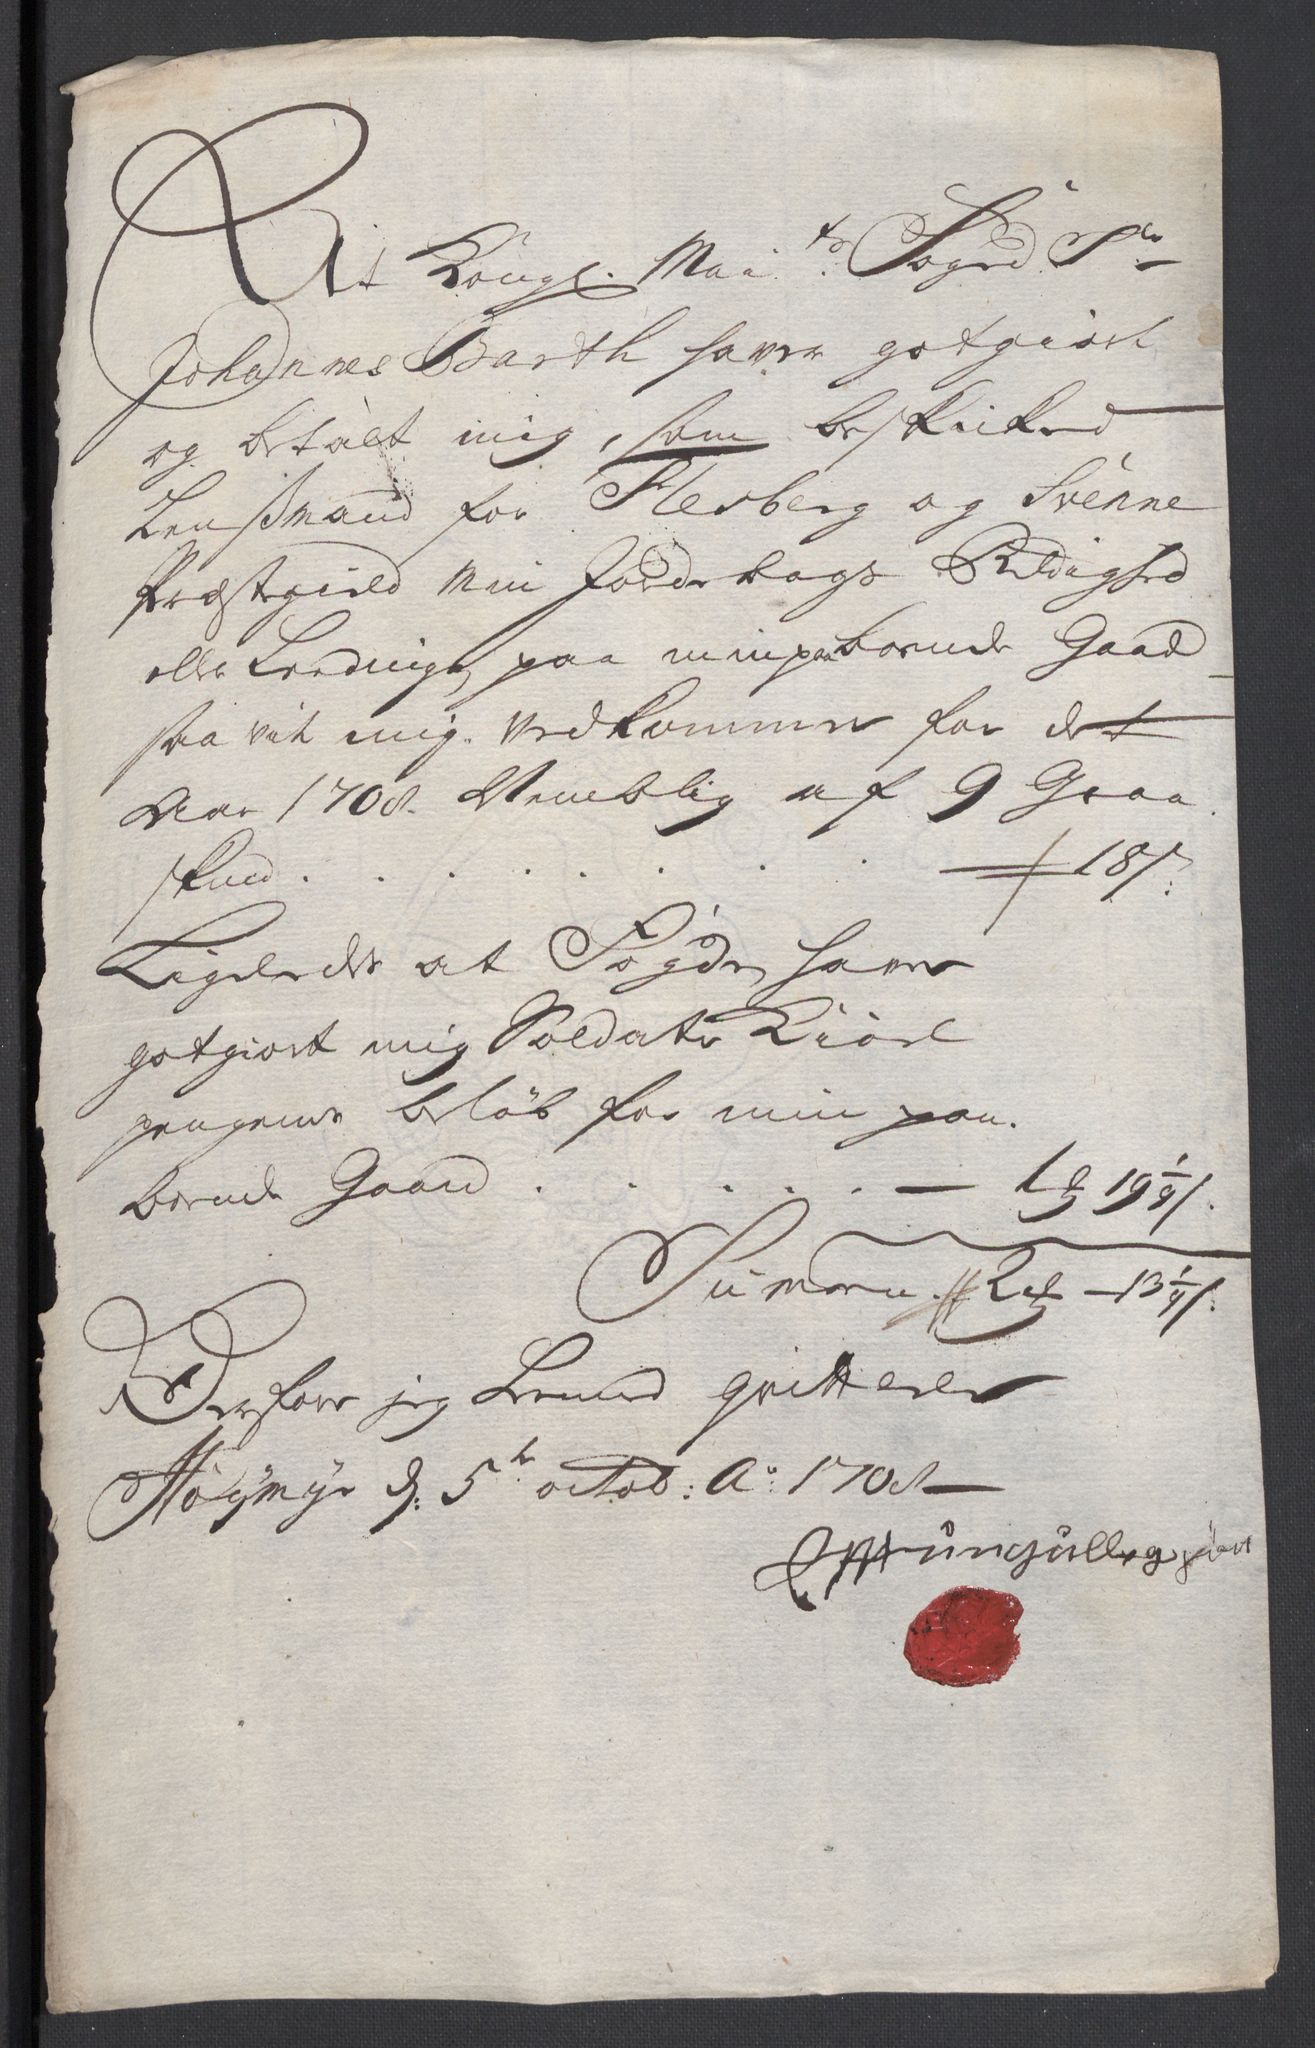 At Kongl. Mai.ts Foged Sr.
Johannes Barth haver gotgiort
og betalt mig, som beskicked
Lensmand for Flesberg og Svenne
Præstegield min Jordebogs Rettighed
eller Leedning, paa min paa boende Gaard
saa vit mig vedkommer for dett
Aar 1708. Nemblig af 9 Graa
skind . . . . . . . 18 s:
Ligeledes at Fogden haver
gotgiort mig Soldater Kiöel
pengenes beløb for min paa
boende Gaard . . . . . — 1 19 1/4 s.
Summa 2 — 13 1/4 s.
Derfore jeg hermed qvitterer
Høymyr d: 5te octob: Ao: 1708